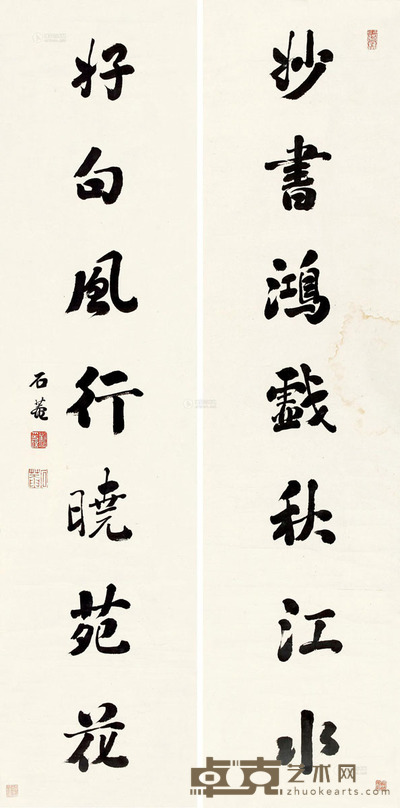 妙書鴻戲秋江水
好句風行曉苑花
石菴
卓克艺术网
www.zhuokearts.com